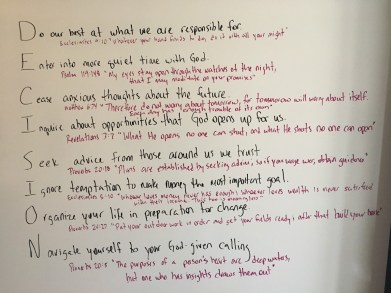 Do our best at what we are responsible for.
Ecclesiastes 9:10 "Whatever your hand finds to do, do it with all your might"
Enter into more quiet time with God.
Psalm 119:148 "My eyes stay open through the watches of the night,
that I may meditate on your promises"
Cease anxious thoughts about the future.
Matthew 6:34 "Therefore do not worry about tomorrow, for tomorrow will worry about itself.
Each day has enough trouble of its own"
Inquire about opportunities that God opens up for us.
Revelations 3:7 "What He opens no one can shut, and what He shuts no one can open"
Seek advice from those around us we trust
Proverbs 20:18 "Plans are established by seeking advice, so if you wage war, obtain guidance"
Ignore temptation to make money the most important goal.
Ecclesiastes 5:10 "Whoever loves money never has enough; whoever loves wealth is never satisfied
with their income. This too is meaningless"
Organize your life in preparation for change.
Proverbs 24:27 "Put your outdoor work in order and get your fields ready; after that build your house"
Navigate yourself to your God-given calling
Proverbs 20:5 "The purposes of a person's heart are deep waters,
but one who has insight draws them out"